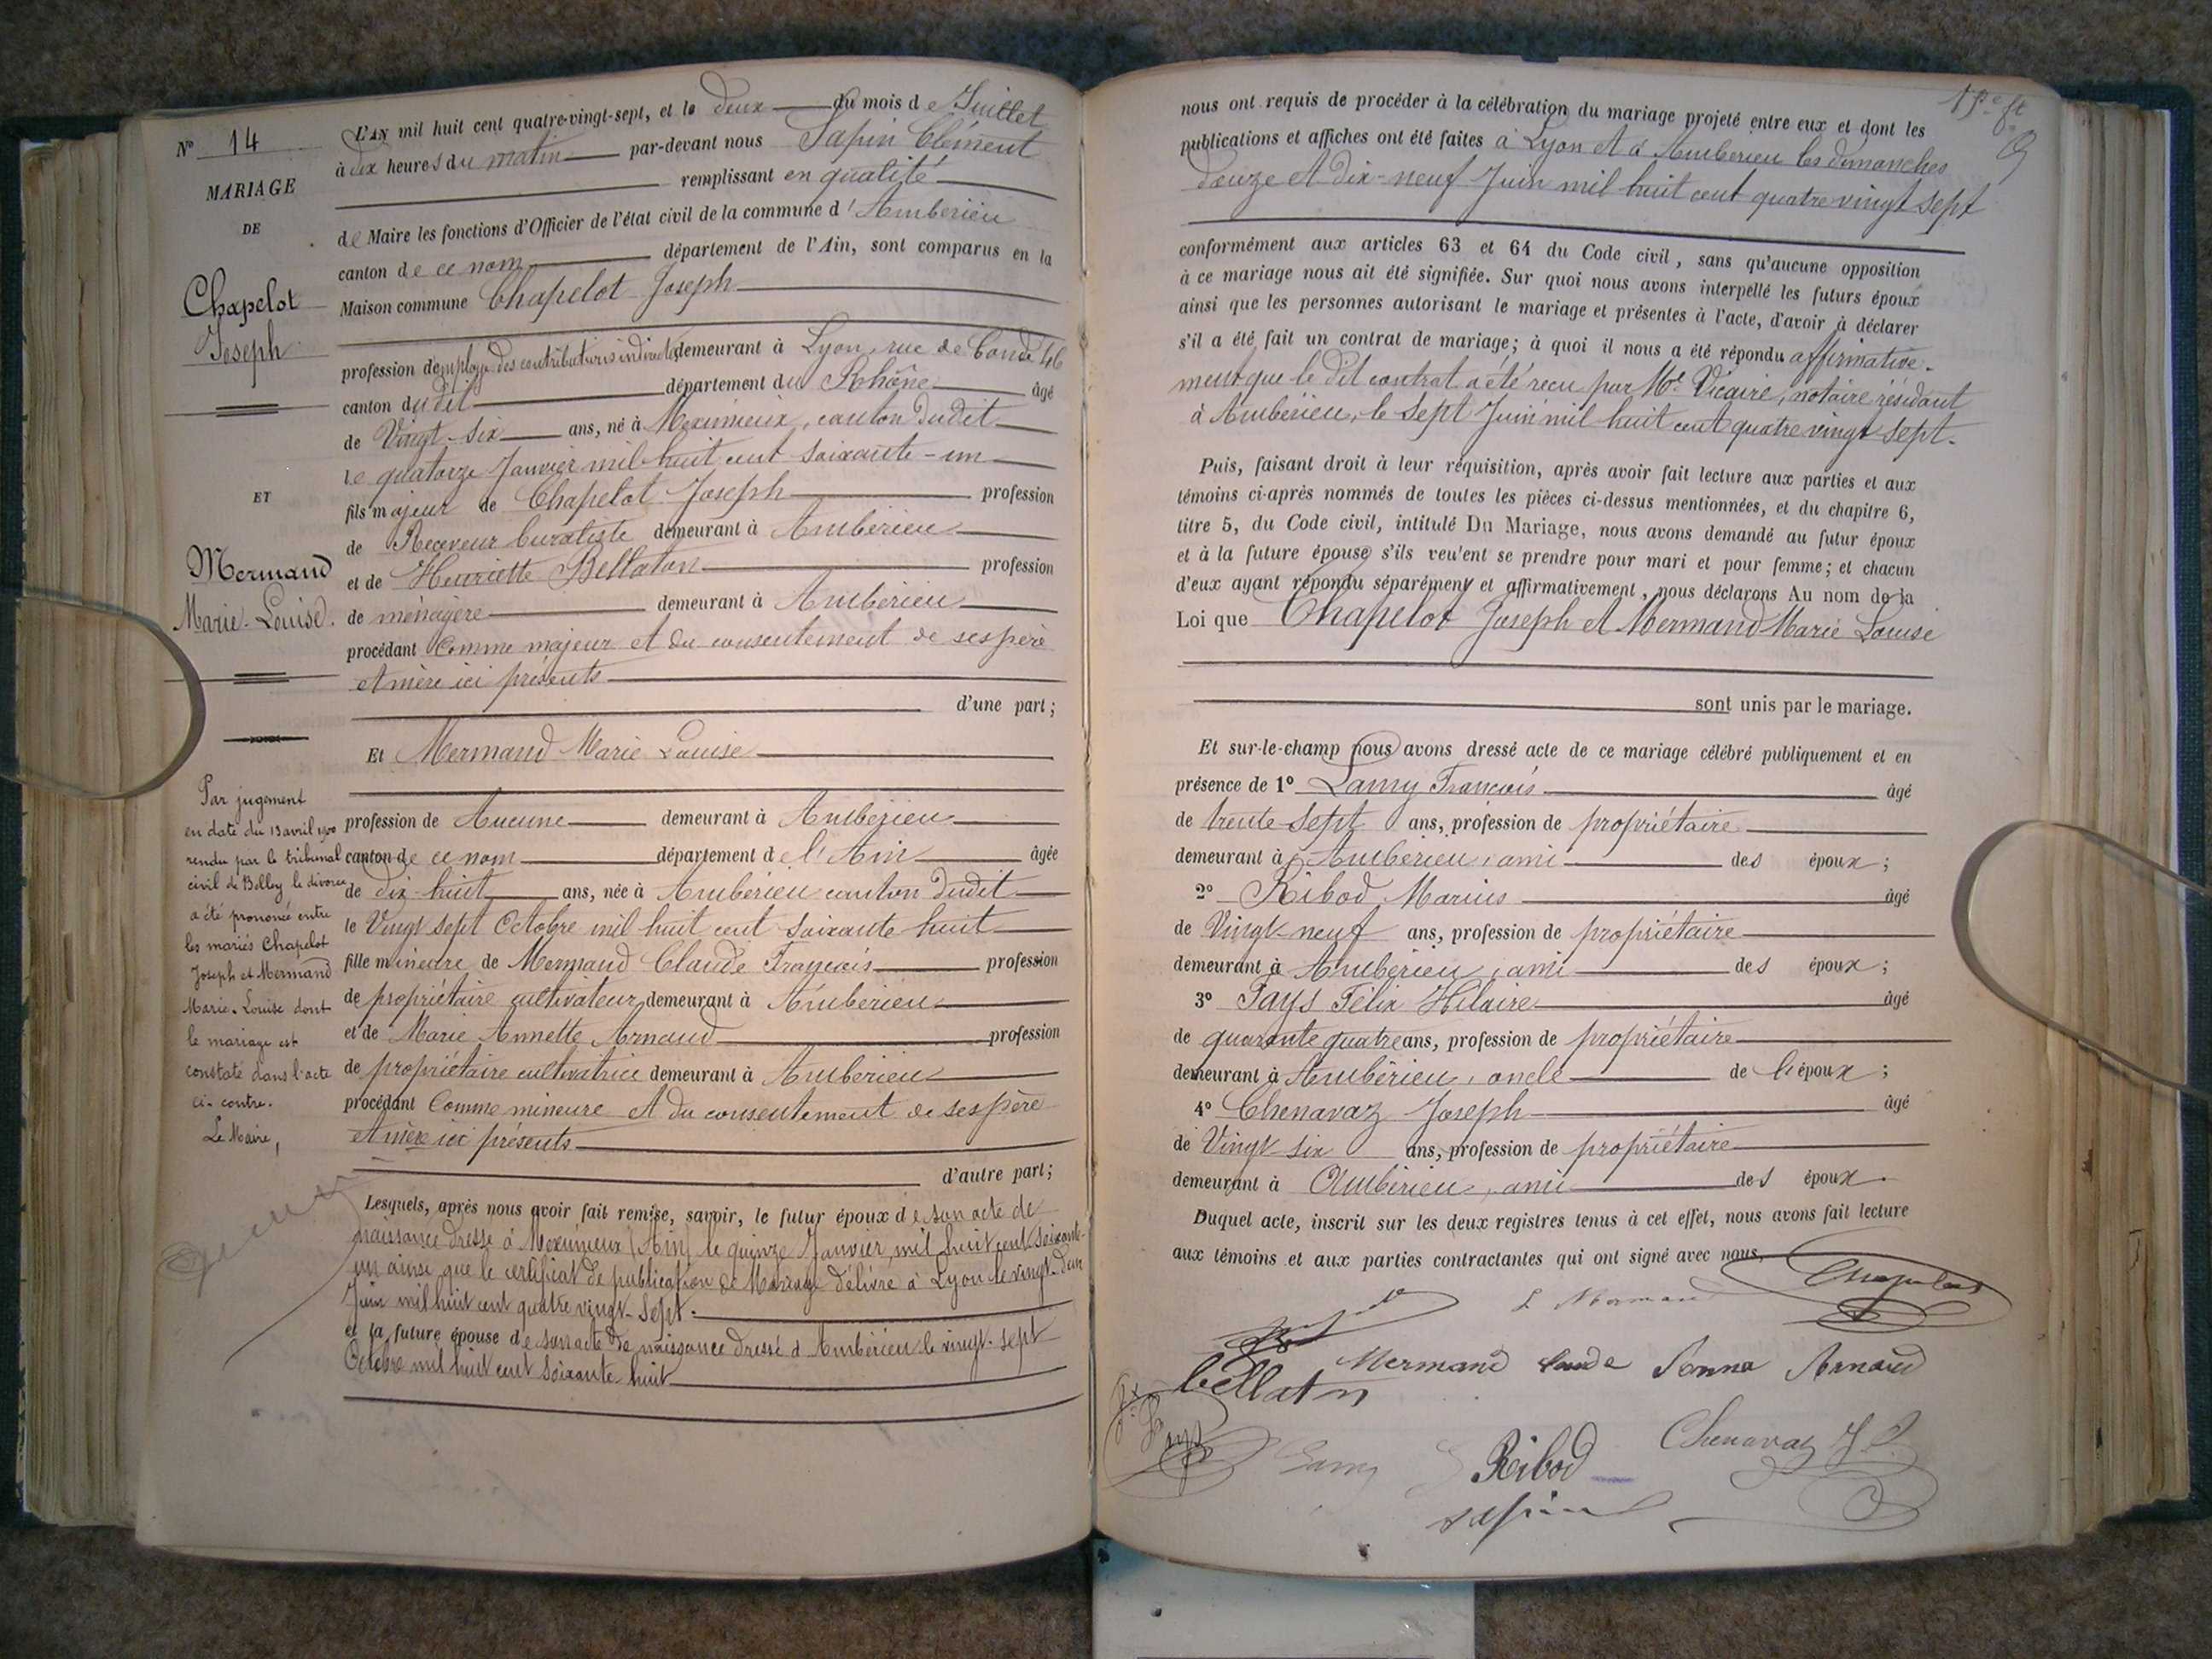 N° 14
MARIAGE
DE
Chapelot
Joseph
ET
Mermand
Marie-Louise.
Par jugement
en date du 13 avril 1900
rendu par le tribunal
civil de Belley le divorce
a été prononcé entre
les mariés Chapelot
Joseph et Mermand
Marie-Louise dont
le mariage est
constaté dans l'acte
ci-contre.
Le Maire,
L'AN mil huit cent quatre-vingt-sept, et le deux du mois de Juillet
à dix heures du matin par-devant nous Sapin Clément
remplissant en qualité
de Maire les fonctions d'Officier de l'état civil de la commune d'Ambérieu
canton de ce nom département de l'Ain, sont comparus en la
Maison commune Chapelot Joseph
profession d'employé des contributions indirectes demeurant à Lyon, rue de Condé 46
canton dudit département du Rhône âgé
de Vingt-six ans, né à Meximieux, canton dudit
le quatorze Janvier mil huit cent soixante-un
fils majeur de Chapelot Joseph profession
de Receveur buraliste demeurant à Ambérieu
et de Henriette Bellaton profession
de ménagère demeurant à Ambérieu
procédant Comme majeur et du consentement de ses père
et mère ici présents
d'une part;
Et Mermand Marie Louise
profession de Aucune demeurant à Ambérieu
canton de ce nom département de l'Ain âgée
de dix-huit ans, née à Ambérieu canton dudit
le Vingt sept Octobre mil huit cent soixante huit
fille mineure de Mermand Claude François profession
de propriétaire cultivateur demeurant à Ambérieu
et de Marie Annette Arnaud profession
de propriétaire cultivatrice demeurant à Ambérieu
procédant Comme mineure et du consentement de ses père
et mère ici présents
d'autre part;
Lesquels, après nous avoir fait remise, savoir, le futur époux de son acte de
naissance dressé à Meximieux (Ain) le quinze Janvier mil huit cent soixante-
un ainsi que le certificat de publication de Mariage délivré à Lyon le vingt-deux
Juin mil huit cent quatre vingt-sept.
et la future épouse de son acte de naissance dressé à Ambérieu le vingt-sept
Octobre mil huit cent soixante-huit
nous ont requis de procéder à la célébration du mariage projeté entre eux et dont les
publications et affiches ont été faites à Lyon et à Ambérieu les dimanches
douze et dix-neuf Juin mil huit cent quatre vingt sept
conformément aux articles 63 et 64 du Code civil, sans qu'aucune opposition
à ce mariage nous ait été signifiée. Sur quoi nous avons interpellé les futurs époux
ainsi que les personnes autorisant le mariage et présentes à l'acte, d'avoir à déclarer
s'il a été fait un contrat de mariage; à quoi il nous a été répondu affirmative-
ment que le dit contrat a été reçu par Me Vicaire, notaire résidant
à Ambérieu, le sept Juin mil huit cent quatre vingt sept.
Puis, faisant droit à leur réquisition, après avoir fait lecture aux parties et aux
témoins ci-après nommés de toutes les pièces ci-dessus mentionnées, et du chapitre 6,
titre 5, du Code civil, intitulé Du Mariage, nous avons demandé au futur époux
et à la future épouse s'ils veu'ent se prendre pour mari et pour femme; et chacun
d'eux ayant répondu séparément et affirmativement, nous déclarons Au nom de la
Loi que Chapelot Joseph et Mermand Marie Louise
sont unis par le mariage.
Et sur-le-champ nous avons dressé acte de ce mariage célébré publiquement et en
présence de 1° Lamy François âgé
de trente sept ans, profession de propriétaire
demeurant à Ambérieu, ami des époux;
2° Ribod Marius âgé
de Vingt-neuf ans, profession de propriétaire
demeurant à Ambérieu, ami des époux;
3° Fays Félix Hilaire âgé
de quarante quatre ans, profession de propriétaire
demeurant à Ambérieu, oncle de l'époux;
4° Chenavaz Joseph âgé
de Vingt six ans, profession de propriétaire
demeurant à Ambérieu, ami des époux.
Duquel acte, inscrit sur les deux registres tenus à cet effet, nous avons fait lecture
aux témoins et aux parties contractantes qui ont signé avec nous.
Chapelot
L Mermand
Mermand Claude Anna Arnaud
Bellatn
Lamy Ribod Chenavaz J.
Sapin